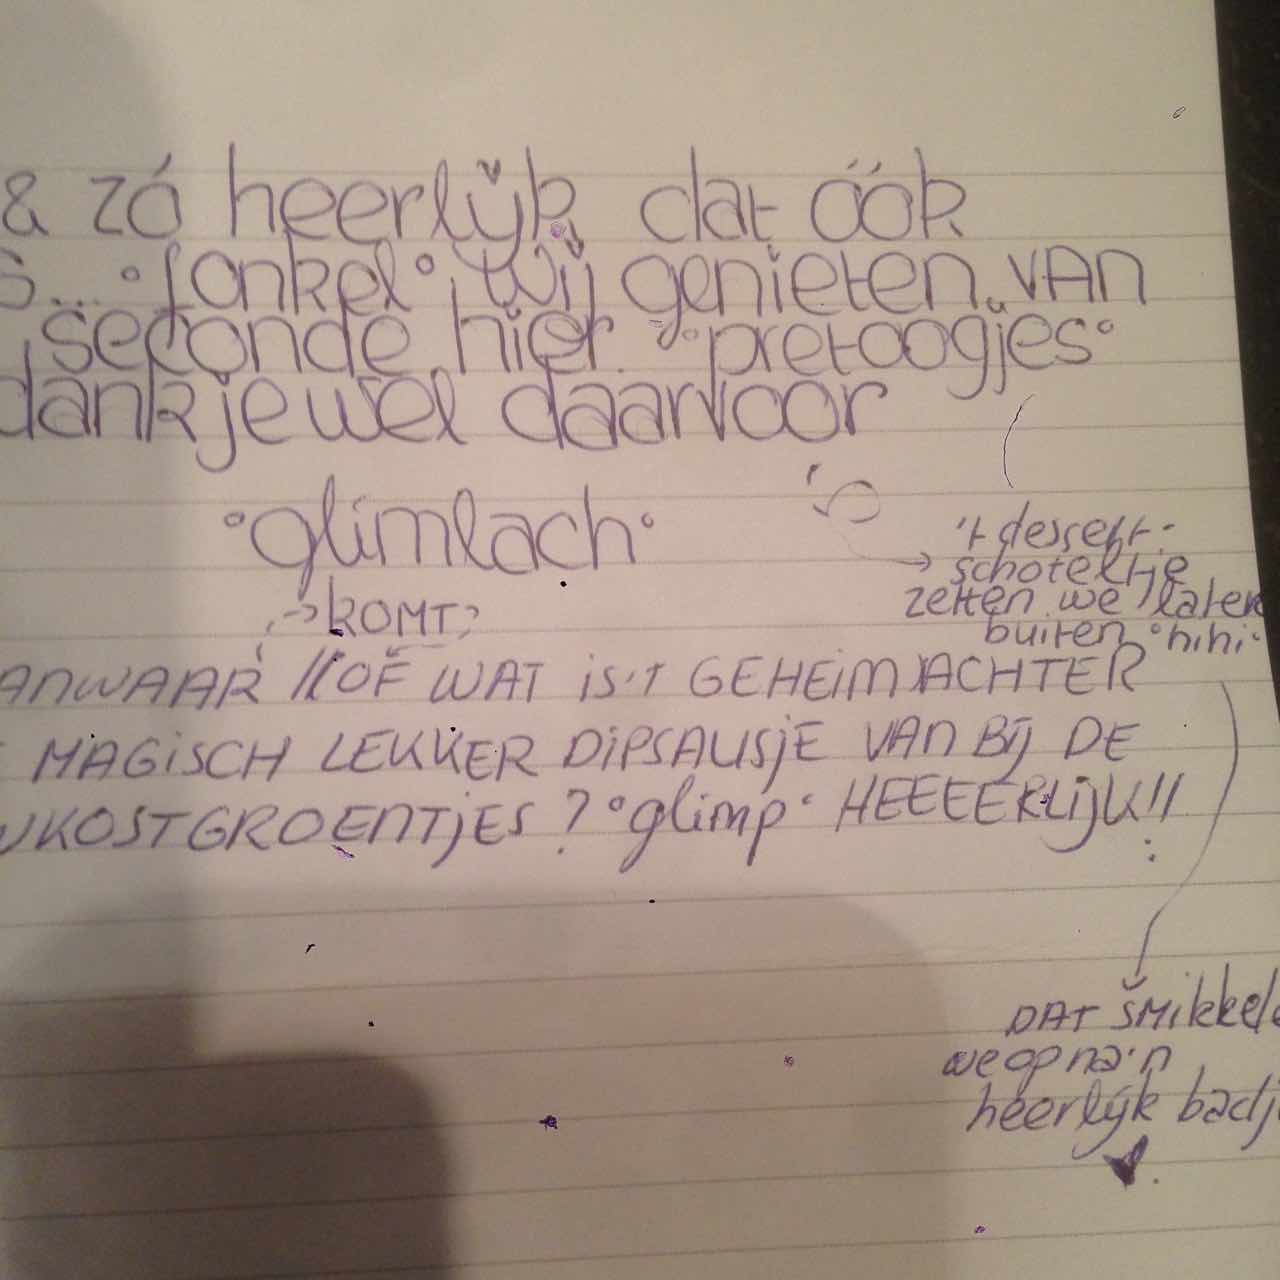 & zó heerlijk dat óók
s... °fonkel°, wij genieten van
seconde hier °pretoogjes°
dankjewel daarvoor
°glimlach°
't dessert-
schoteltje
zetten we later
buiten °hihi°
→ KOMT
ANWAAR // OF WAT is 't GEHEIM ACHTER
MAGISCH LEKKER DIPSAUSJE VAN BIJ DE
UKOSTGROENTJES? °glimp° HEEEERLIJK!!
DAT SMIKKELE
we op na 'n
heerlijk badj